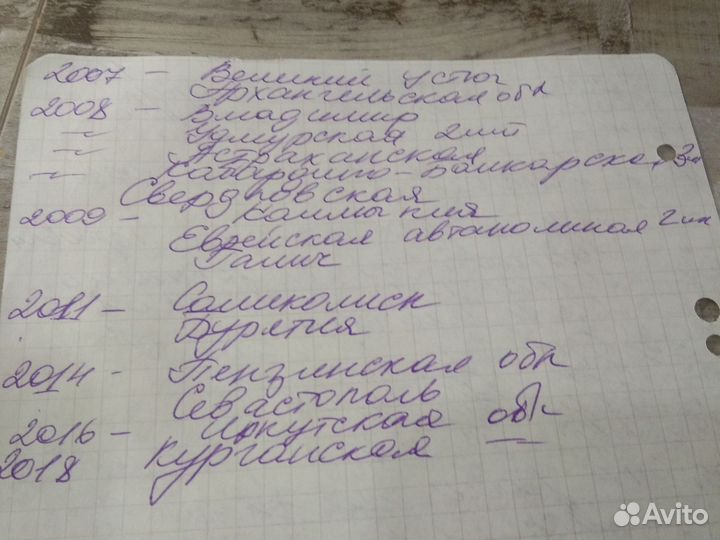 2007 - Великий Устюг
Архангельская обл
2008 - Владимир
-"- Удмурская 2шт
-"- Астраханская
-"- Кабардино-Балкарская 3ш
Свердловская
2009 - Калмыкия
Еврейская автономная 2шт
Галич
2011 - Соликамск
Бурятия
2014 - Пензенская обл
Севастополь
2016 - Иркутская обл
2018 Курганская
Avito